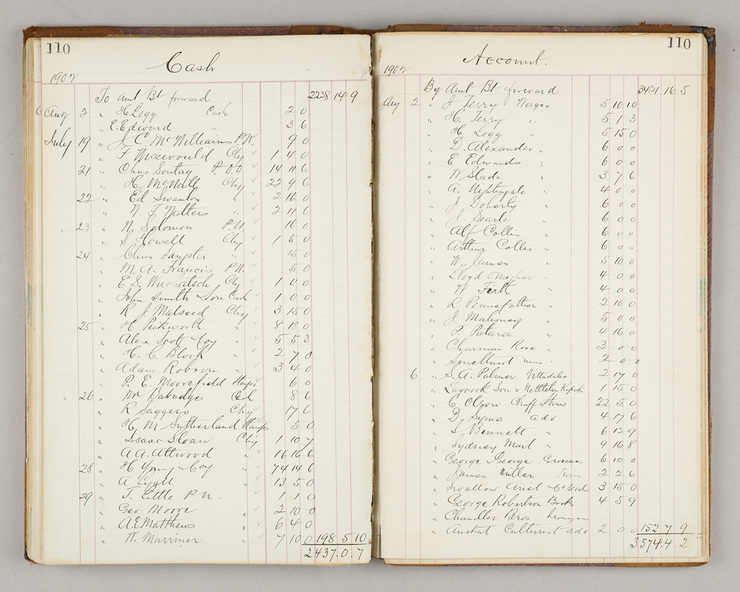 110
Cash
1902
To Amt Bt forward 2238 14 9
Aug 2 " H. Legg Cash 2 0
" E. Edward " 3 6
July 19 " J. C. McWilliams P.N. 9 0
" F. Chq 1 4 0
21 " Chas Sontag P.O.O 14 11 6
" H. McNall Chq 22 9 6
22 " Ed Swanlow " 2 16 0
" N. F. Walters " 2 11 0
23 " N. Solomon P.N. 16 0
" S. Howell Chq 1 5 0
24 " Chas Sangster " 15 0
" M. A. Francis P.N. 5 0
" E. S. Chq 1 0 0
" John Smith & Son Cash 1 0 0
" R. J. Chq 3 15 0
25 " H. Pickworth " 8 10 0
" Alex Scott & Coy " 5 5 3
" H. C. " 2 7 0
" Adam Robson " 3 4 0
" P. E. Moorfield 6 0
26 " Mr Babidge Cash 8 6
" R Saggers Chq 17 6
" H. M. Sutherland 5 0
" Isaac Sloan Chq 1 10 7
" A. A. Attwood " 16 16 6
28 " H. Young & Coy " 74 14 6
" A. Lyall " 13 5 0
29 " T. Little P.N. 1 1 0
" Geo Moore " 2 10 0
" A. E. Matthews " 6 4 0
" W. Marriner " 7 10 0 198 5 10
2437 0 7
110
Account.
1902
By Amt Bt forward 3421 16 5
Aug 2 " J. Terry Wages 5 10 10
" H. Terry " 5 1 3
" H. Legg " 5 15 0
" D. Alexander " 6 0 0
" E Edwards " 6 0 0
" W. Slade " 3 7 6
" A. Nightingale " 4 0 0
" J. Doherty " 6 0 0
" J. Searle " 6 0 0
" Alf Collis " 6 0 0
" Arthur Collis " 6 0 0
" W. James " 5 10 0
" Lloyd " 4 0 0
" W Firth " 4 0 0
" R " 2 10 0
" J. Mahoney " 5 0 0
" P. " 4 16 0
" Chairman Row " 3 0 0
" " 2 0 0
6 " S. A. Palmer 2 17 0
" Laycock Son & Nettleton Kapok 1 15 0
" C. Olson Chaff 22 5 0
" D. Syms adv 4 17 6
" S. Bennett " 6 12 9
" Sydney Mail " 4 16 8
" George & George 6 10 0
" James Miller 2 2 6
" Swallow & Ariel 3 15 0
" George Robertson Books 4 5 9
" Chandler Bros
" Austral Culturist adv 2 0 0 152 7 9
3574 4 2